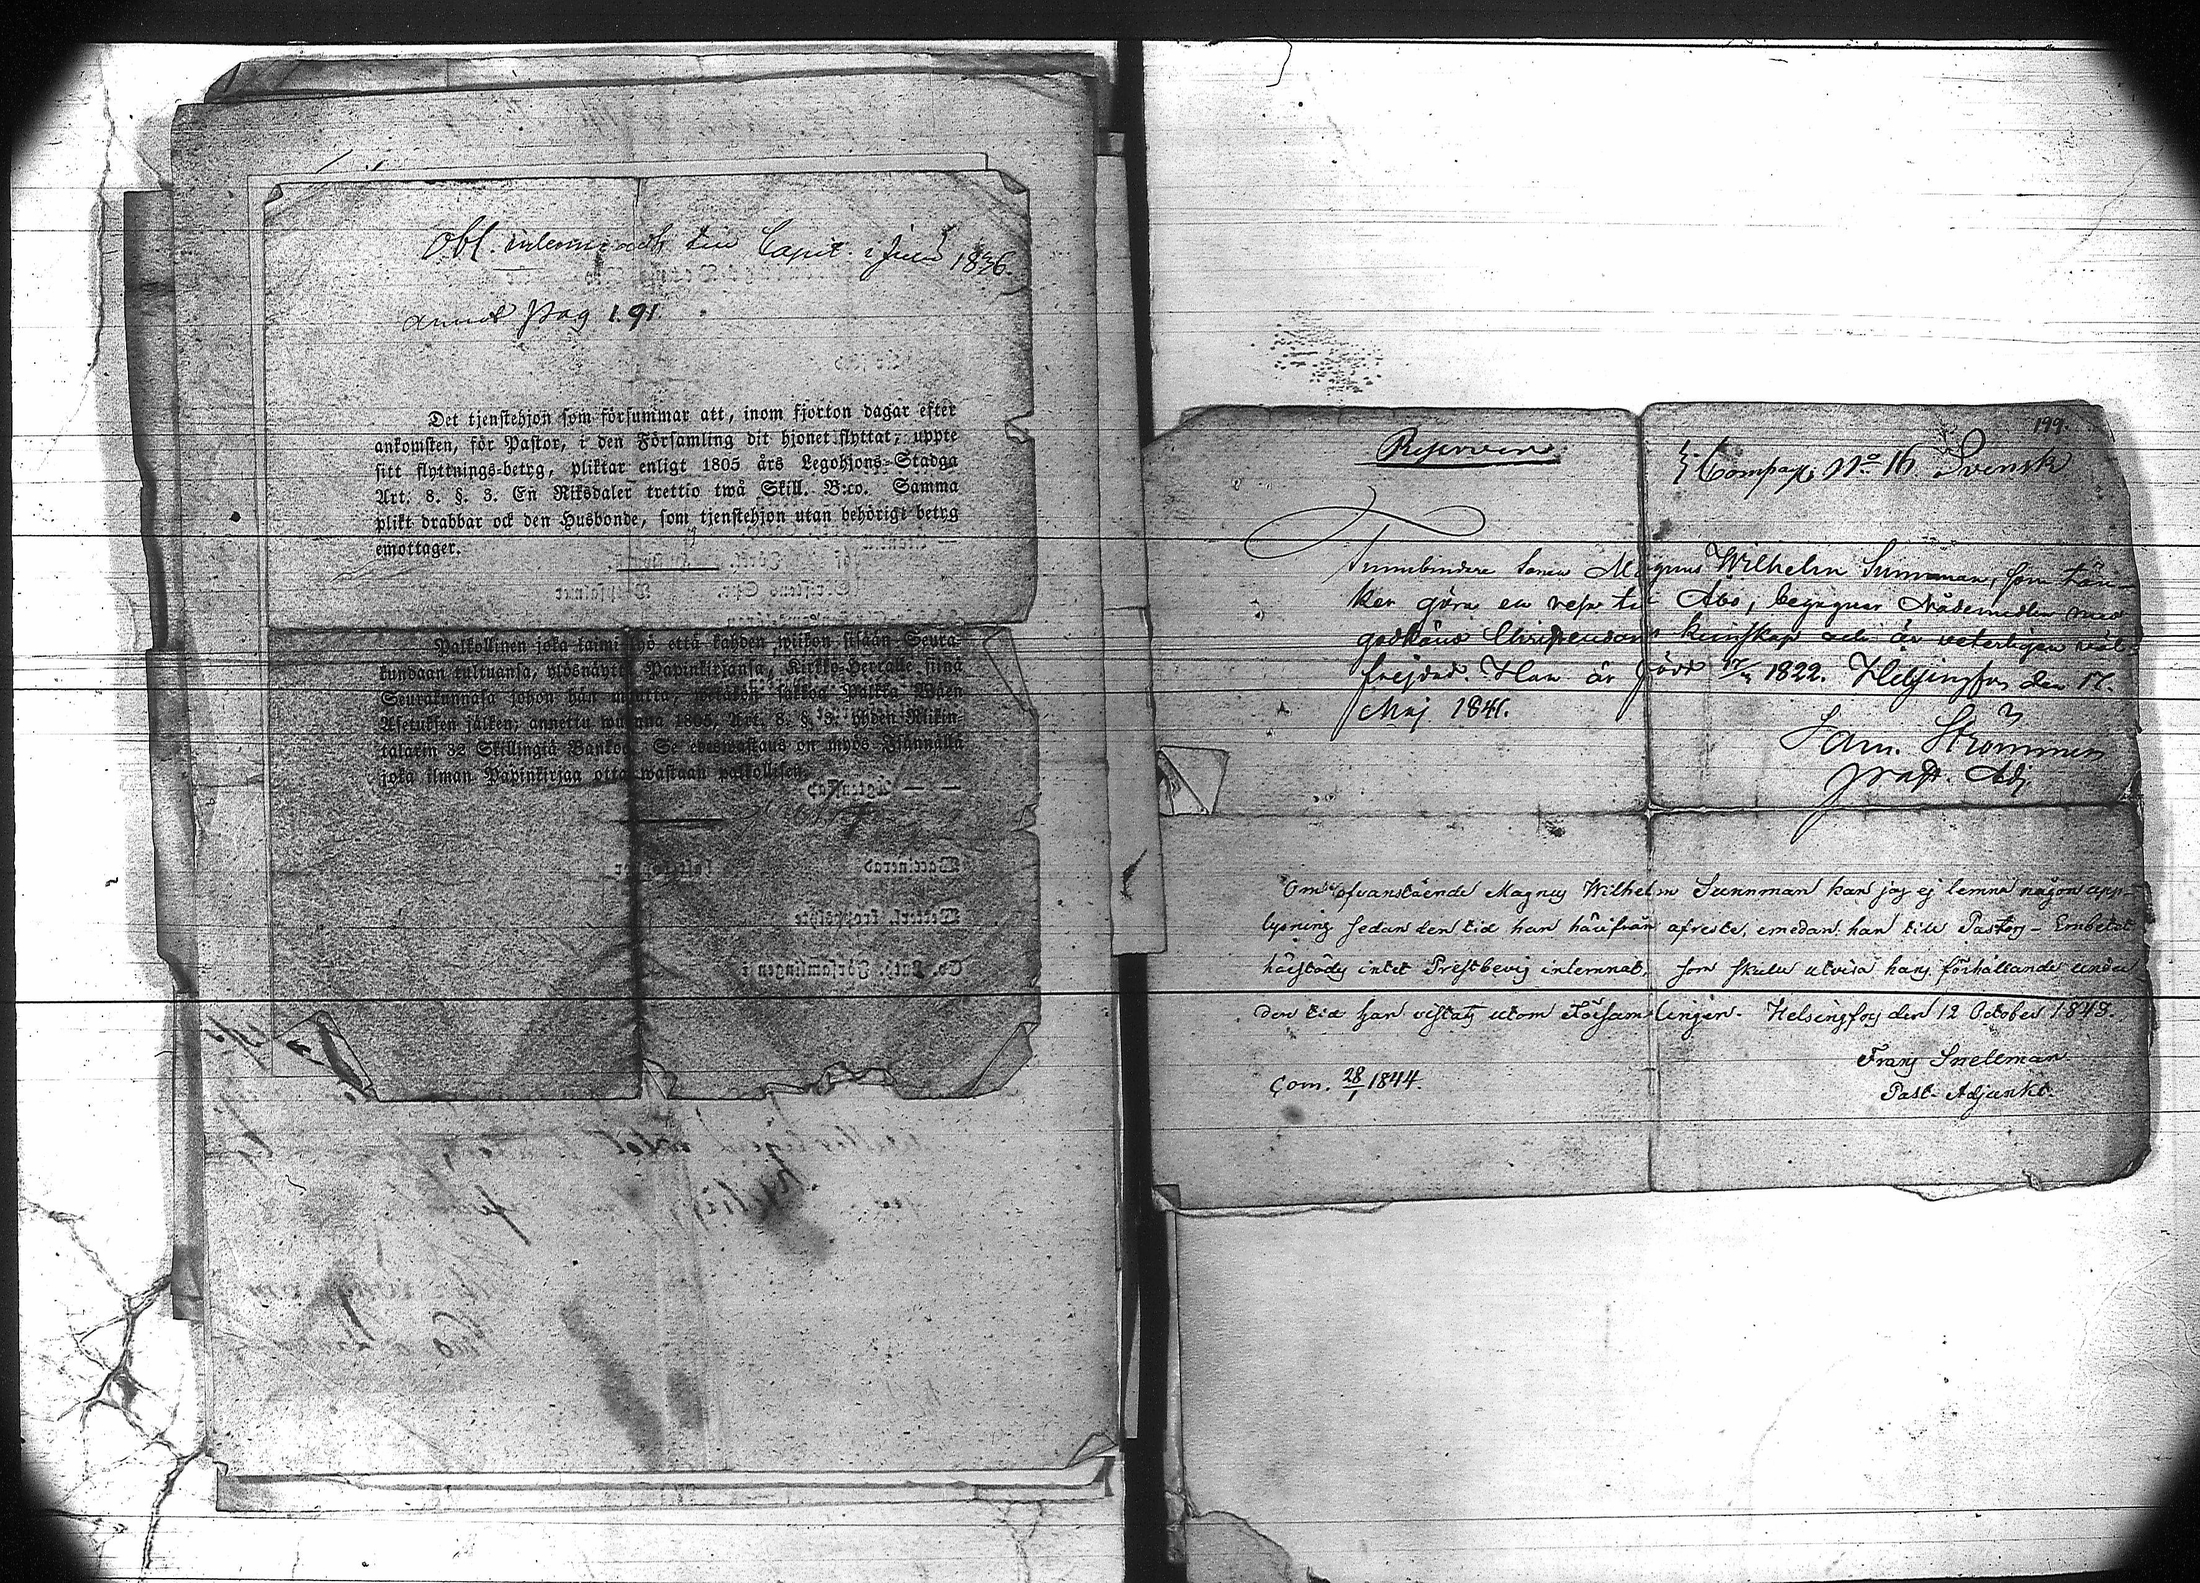 Obl. inlemnadt till Capit. i Juli 1836.
Pag 1.91.
Det tjenstehjon som försummar att, inom fjorton dagar efter
ankomsten, för Pastor, i den Församling dit hjonet flyttat, uppte
sitt flyttnings-betyg, pliktar enligt 1805 års Legohjons-Stadga
Art. 8. §. 3. En Riksdaler trettio twå Skill. B:co. Samma
plikt drabbar ock den Husbonde, som tjenstehjon utan behörigt betyg
emottager.
Palkollinen joka laimi lyö että kahden wiikon sisään Seura-
kundaan tultuansa, ylösnäyttä Papinkirjansa, Kirkko-Herralle siinä
Seurakunnasa johon hän muutta, wetäkön sakkoa Palkka Wäen
Asetuksen jälken, annettu wuonna 1805, Art. 8. §. 3. yhden Rikin-
talarin 32 Skillingiä Bankoa. Se edeswastaus on myös Isännällä
joka ilman Papinkirjaa otta wastaan palkollisen.
199.
Compag. No 16 Svensk
Tunnbindare Sonen Magnus Wilhelm Sunnman, som tän-
ker göra en resa till Åbo, begagnar Nådemedlen med
godkänd Christendoms kunskap och är veterligen väl-
frejdad. Han är född 1822. Helsingfors den 17.
Maj 1841.
Sam. Strömmer
Past. Adj.
Om ofvanstående Magnus Wilhelm Sunnman kan jag ej lemna någon upp-
lysning sedan den tid han härifrån afreste, emedan han till Pastors-Embetet
härstädes intet Prestbevis inlemnat, som skulle utvisa hans förhållande under
den tid han vistats utom Församlingen. Helsingfors den 12 October 1843.
Frans Snellman
Past. Adjunkt.
Com. 28/1 1844.